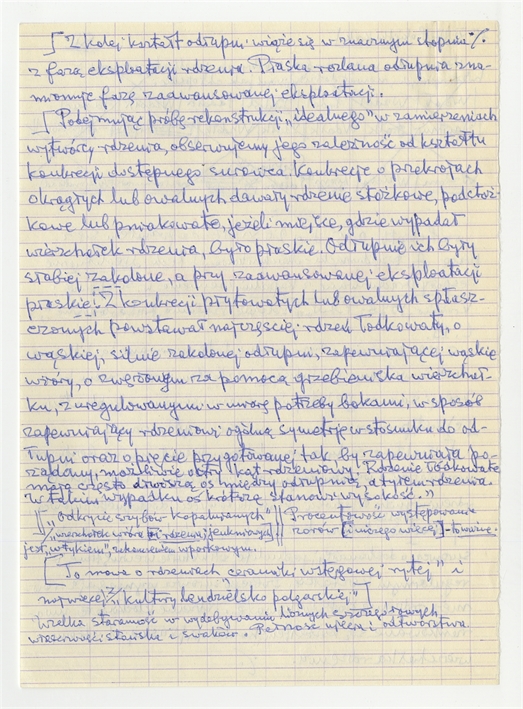 [Z kolei kształt odłupni wiąże się w znacznym stopniu %
z fazą eksploatacji rdzenia. Płaska rozlana odłupnia zna-
mionuje fazę zaawansowanej eksploatacji.
[Podejmując próbę rekonstrukcji „idealnego" w zamierzeniach
wytwórcy rdzenia, obserwujemy jego zależność od kształtu
konkrecji dostępnego surowca. Konkrecje o przekrojach
okrągłych lub owalnych dawały rdzenie stożkowe, podstoż-
kowe lub pniakowate, jeżeli miejsce, gdzie wypadał
wierzchołek rdzenia, było płaskie. Odłupnie ich były
słabiej zakolone, a przy zaawansowanej eksploatacji
płaskie. Z konkrecji płytowatych lub owalnych spłasz-
czonych powstawał najczęściej rdzeń łódkowaty, o
wąskiej, silnie zakolonej odłupni, zapewniającej wąskie
wióry, o zwężonym za pomocą grzebieniska wierzchoł-
ku, z uregulowanymi w miarę potrzeby bokami, w sposób
zapewniający rdzeniowi ogólną symetrię w stosunku do od-
łupni oraz o pięcie przygotowanej tak by zapewniała po-
żądany, możliwie ostry kąt rdzeniowy. Rdzenie łódkowate
mają często dłuższą oś między odłupnią, a tyłem rdzenia.
W takim wypadku oś krótszą stanowi wysokość."
„Odkrycie szybów kopalnianych" || Procentowość występowania
„wierzchołek wióra rdzeniu || wiórów [i niczego więcej]
jest „wtykiem",
[To mowa o rdzeniach ceramiki wstęgowej rytej" i
najwięcej „kultury lendzielsko polgarskiej"]
Wielka staranność w wydobywaniu
właściwości i Pełność ujęcia i odtwórstwa